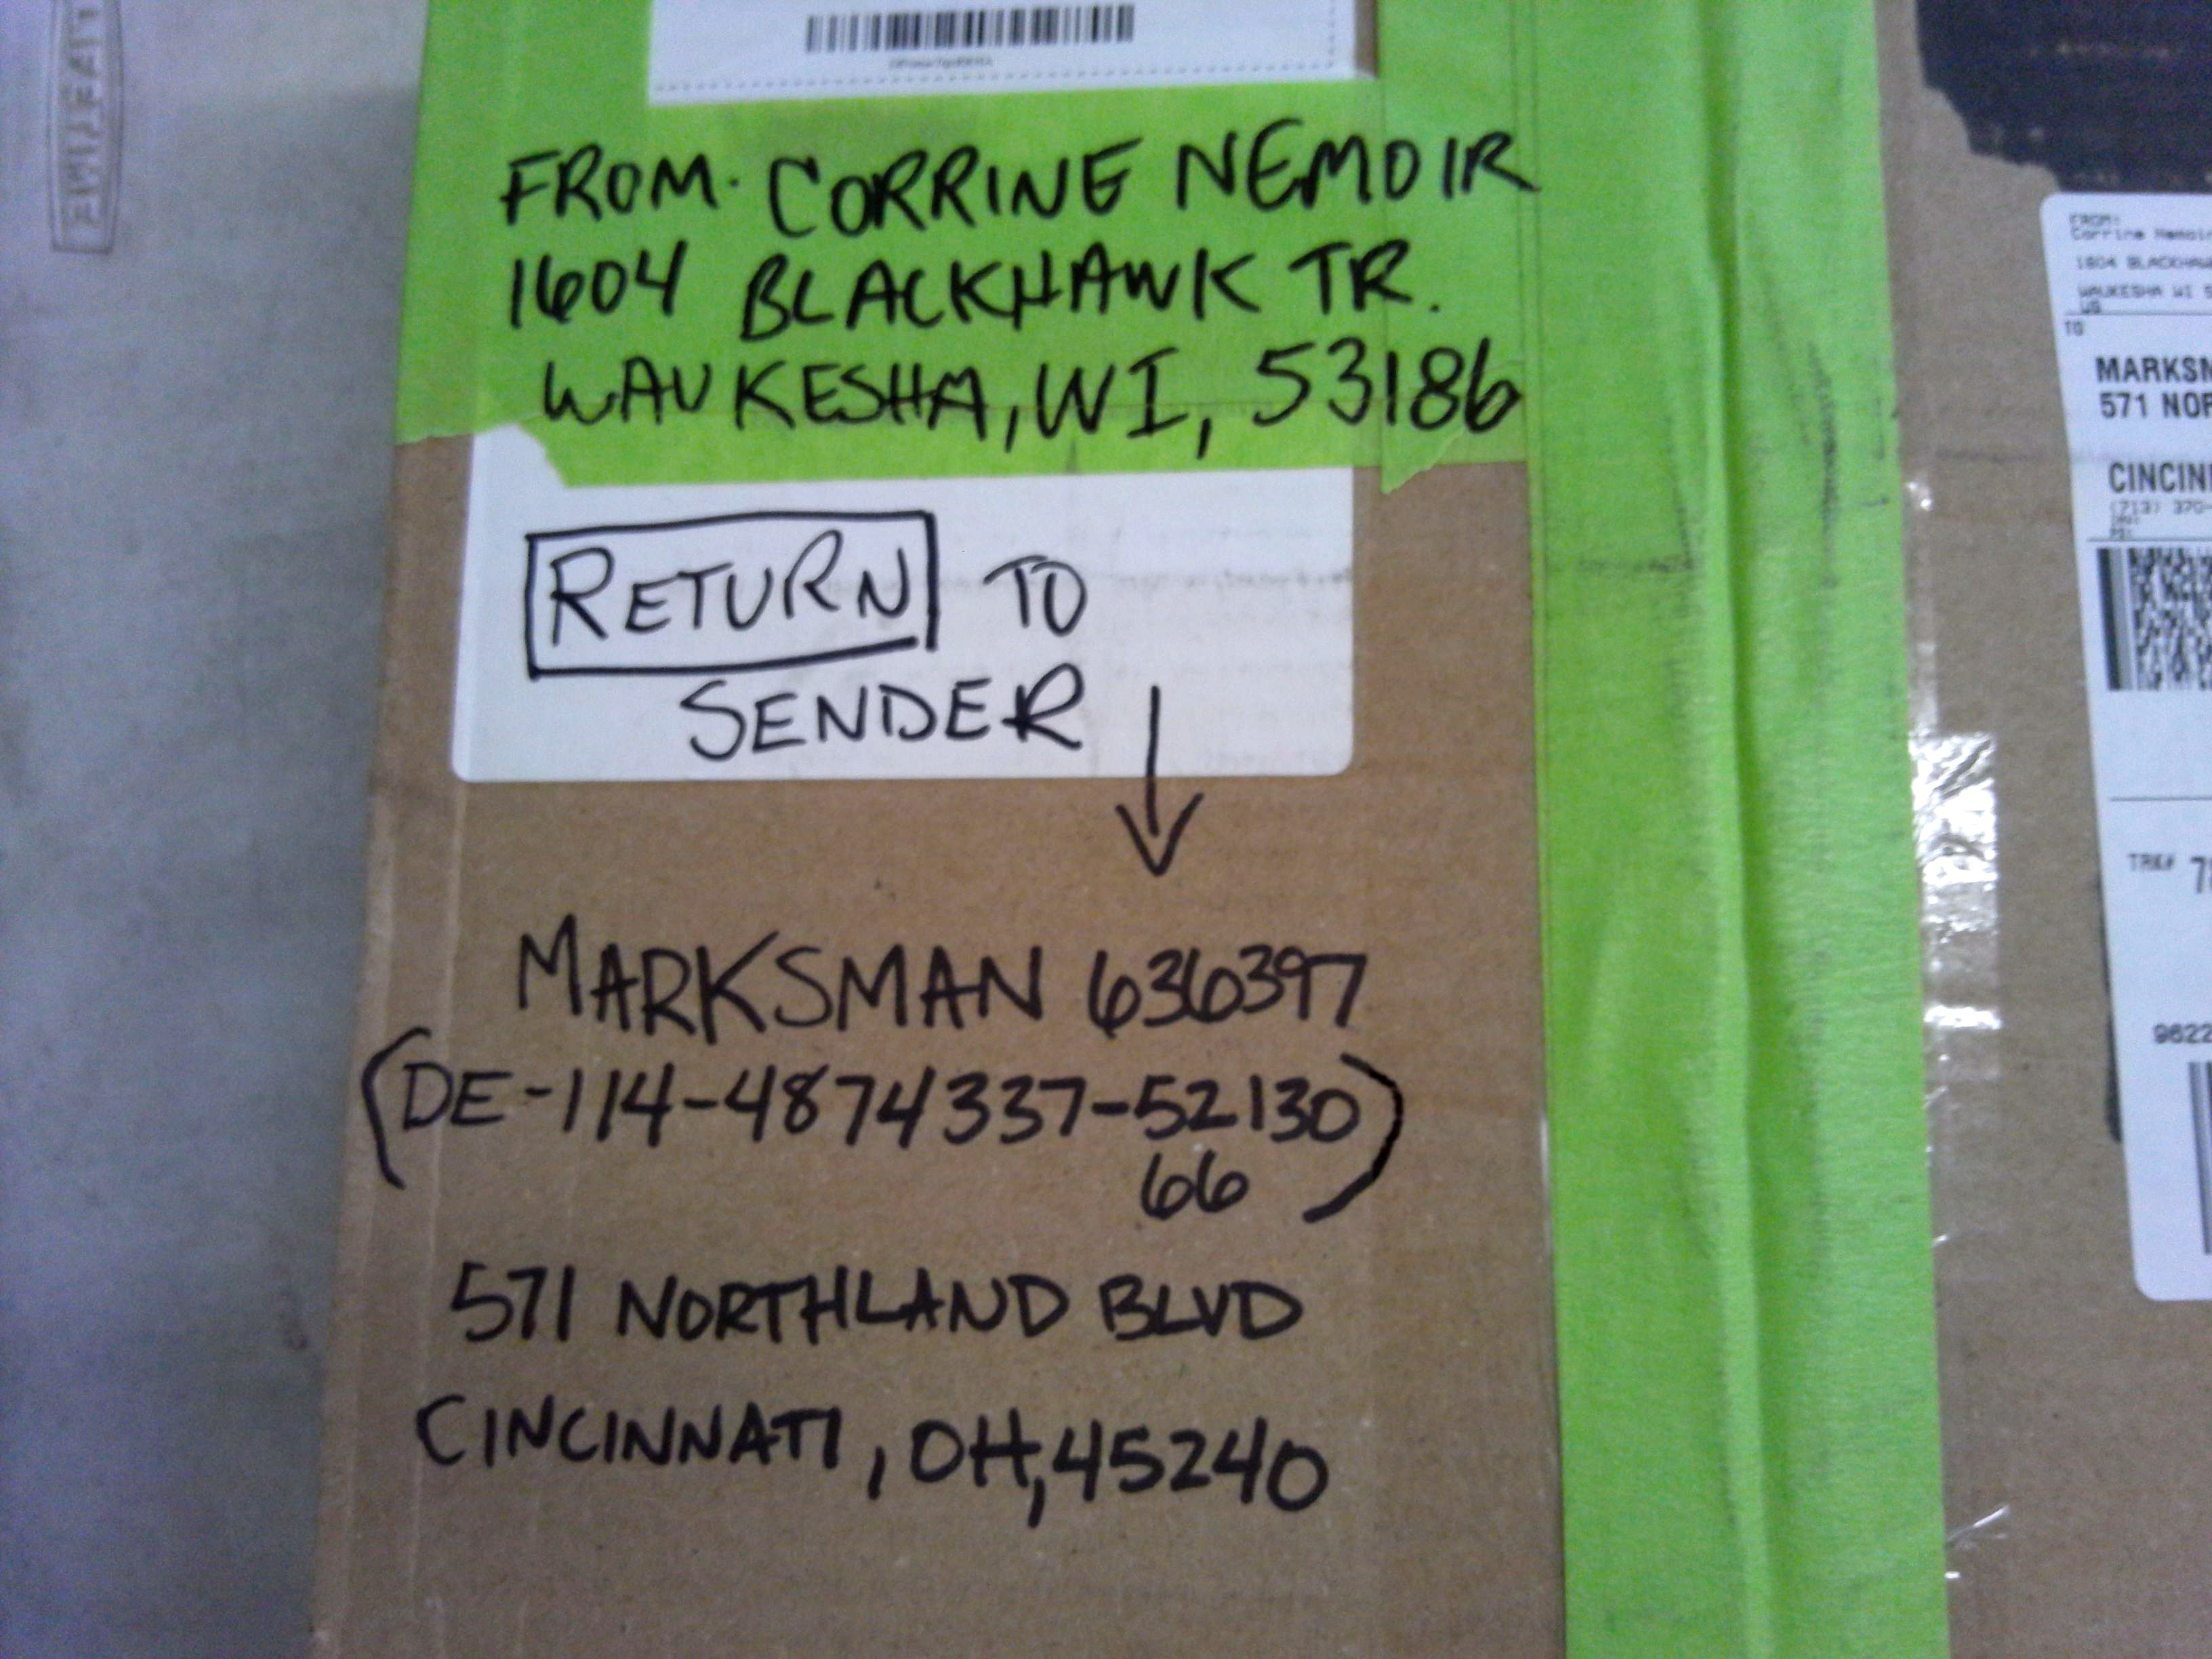 FROM. CORRINE NEMOIR
1604 BLACKHAWK TR.
WAUKESHA, WI, 53186
RETURN TO
SENDER
MARKSMAN 636397
(DE-114-4874337-52130
66)
571 NORTHLAND BLVD
CINCINNATI, OH, 45240
LIFETIME
FROM:
Corrine Nemoir
1604 BLACKHAW
WAUKESHA WI 5
US
TO
MARKSM
571 NOR
CINCINN
(713) 370-
TRK# 78
9622